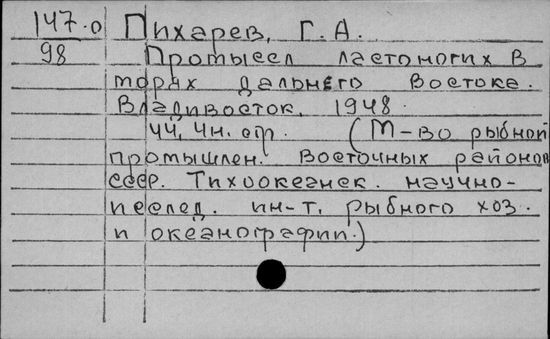 147.0 Пихарев, Г. А.
98 Промысел ластоногих в
морях дальнего Востока.
Владивосток, 1948.
44, 4н. стр. (М-во рыбной
промышлен. Восточных районов
СССР. Тихоокеанск. научно-
исслед. ин-т. рыбного хоз.
и океанографии.)